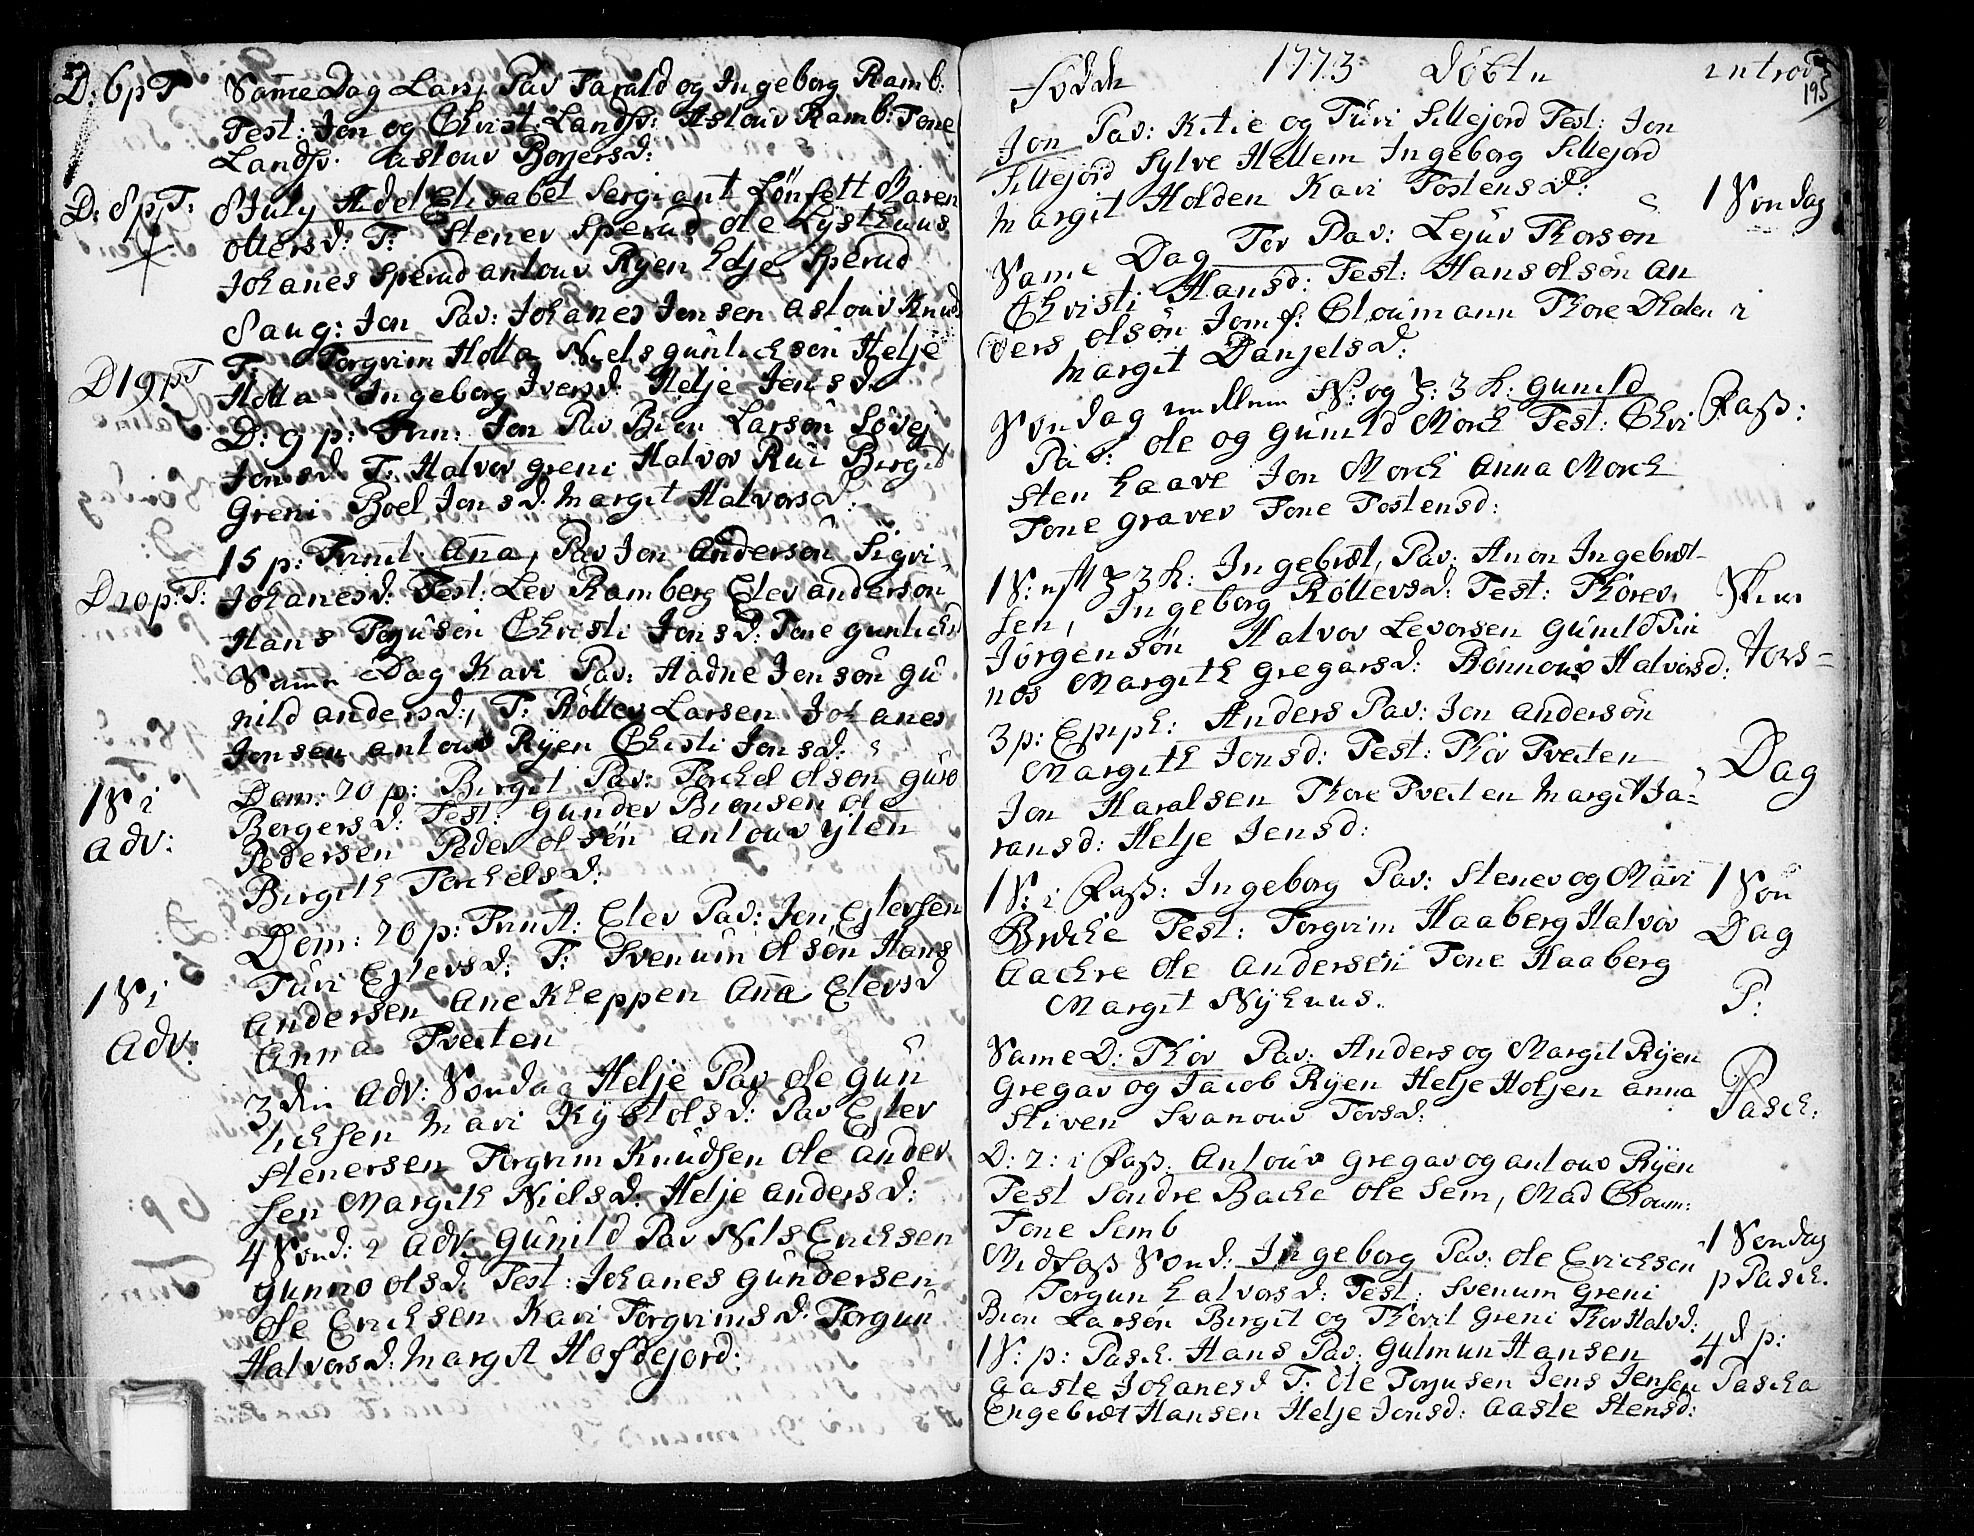 D: 6 p T
Same Dag Lars, Pav Tarald og Ingeborg Ramb:
Test: Jon og Christ: Landsv: Aslouv Ramb: Tone
Landsv: aslouv Borgersd:
D: 8 p T:
8 July Hedel Elisabet Sergiant Lönfett Maren
ollersd: T: Stener Sperud Ole Lysthuus
Johanes Sperud anlouv Ryen Helje Sperud
8 aug: Jon Pav: Johanes Jensen Aslouv Knud
D 19 p T
T: Torgrim Holla Niels gunlichsön Helje
Holla Ingeborg Iversd: Helje Jensd:
D: 9 p: Trin: Jon Pav Biön Larsön Sövej
Jonsd T: Halvor greni Halvor Rui Birgit
Greni Boel Jonsd. Margit Halvorsd:
15 p: Trinit: Anna, Pav Jon Andersön Sigri
D 20 p: T:
Johanesd: Test: Lev Ramberg Elev andersön
Hans Torjusön Christi Jonsd: Tone gunlichs
Same Dag Kari Pav: Hadne Jonsön gu
nild andersd:, T: Röllev Larsen Johanes
Jonsen anlouv Ryen Christi Jonsd:
1 S i
adv:
Dom: 20 p: Birgit Pav: Torchel olsön guro
Bergersd: Test: gunder Biönsen ole
Pedersen Peder olsön anlouv ylen
Birgith Torchelsd:
Dom: 20 p: Trinit: Elev Pav: Jon Eslevsen
Turi Eslevsd: T: Svenum olsön Hans
1 S i
Adv:
Andersen Ane Kleppen Anna Elevsd
Anna Tveiten
3 die Adv: Sondag Helje Pav ole gun
lichsen Mari Kystolsd: Pav Eslev
Stenersen Torgrim Knudsen Ole ander
sen Margith Nielsd: Helje andersd:
4 Sond: i Adv: gunild Pav Nils Erichsen
gunno olsd: Test: Johanes gundersen
ole Erichsen Kari Torgrimsd: Torgun
Halvorsd: Margit Hofdejord:
Födde 1773 Döbte introd
195
Jon Pav: Ketie og Turi Sillejord Test: Jon
Sillejord Sylve Hellem Ingeborg Sillejord
Margit Holden Kari Tostensd:
1 Söndag
Same Dag Tov Pav: Lejuv Thorsön
Christi Hansd: Test: Hans olsön an
ders olsön Jomf: Cloumann Thore
Margit Danjelsd:
Söndag mellem N: og H: 3 K: gunild
Fast:
Pav: ole og gunild Morch Test: Chri
sten haave Jon Morch Anna Morch
Tone graver Tone Tostensd:
1 S: eft H 3 K: Ingebret, Pav: Anon Ingebret-
sen, Ingeborg Röllevsd: Test: Thorev
Skier
Jörgensön Halvor Levorsen gunild Tin
nes Margith gregarsd: Rönnouv Halvorsd:
Tors=
3 p: Epiph: Anders Pav: Jon andersön
Margith Jonsd: Test: Thov Tveiten
Dag
Jon Haralsen Thore Tveiten Margit Ja=
ransd: Helje Jensd:
1 S: i Fast: Ingeborg Pav: Stener og Mari
1 Sön
Breche Test: Torgrim Haaberg Halvor
Dag
Aachre Ole Andersen Tone Haaberg
P:
Margit Nyhuus.
Same D: Thov Pav: Anders og Margit Ryen
gregar og Jacob Ryen Helje Holjen anna
Pasch:
Stiven Svanouv Torsd:
D: 2: i Fast: Anlouv gregar og anlouv Ryen
Test Söndre Bache Ole Sem, Mad Cloum:
Tone Semb
1 Sondag
Midfast Sond: Ingeborg Pav: ole Erichsen
p Pasch.
Torgun halvorsd: Test: Svenum greni
Biön Larsön Birgit og Thovil Greni Thov Halvd:
4 d p:
1 S: p: Pasch. Hans Pav: Gulmun Hansen
Aasle Johanesd T: ole Torjusen Jens Jensen
Pascha
Engebret Hansen Helje Jonsd: Aasle Stensd: